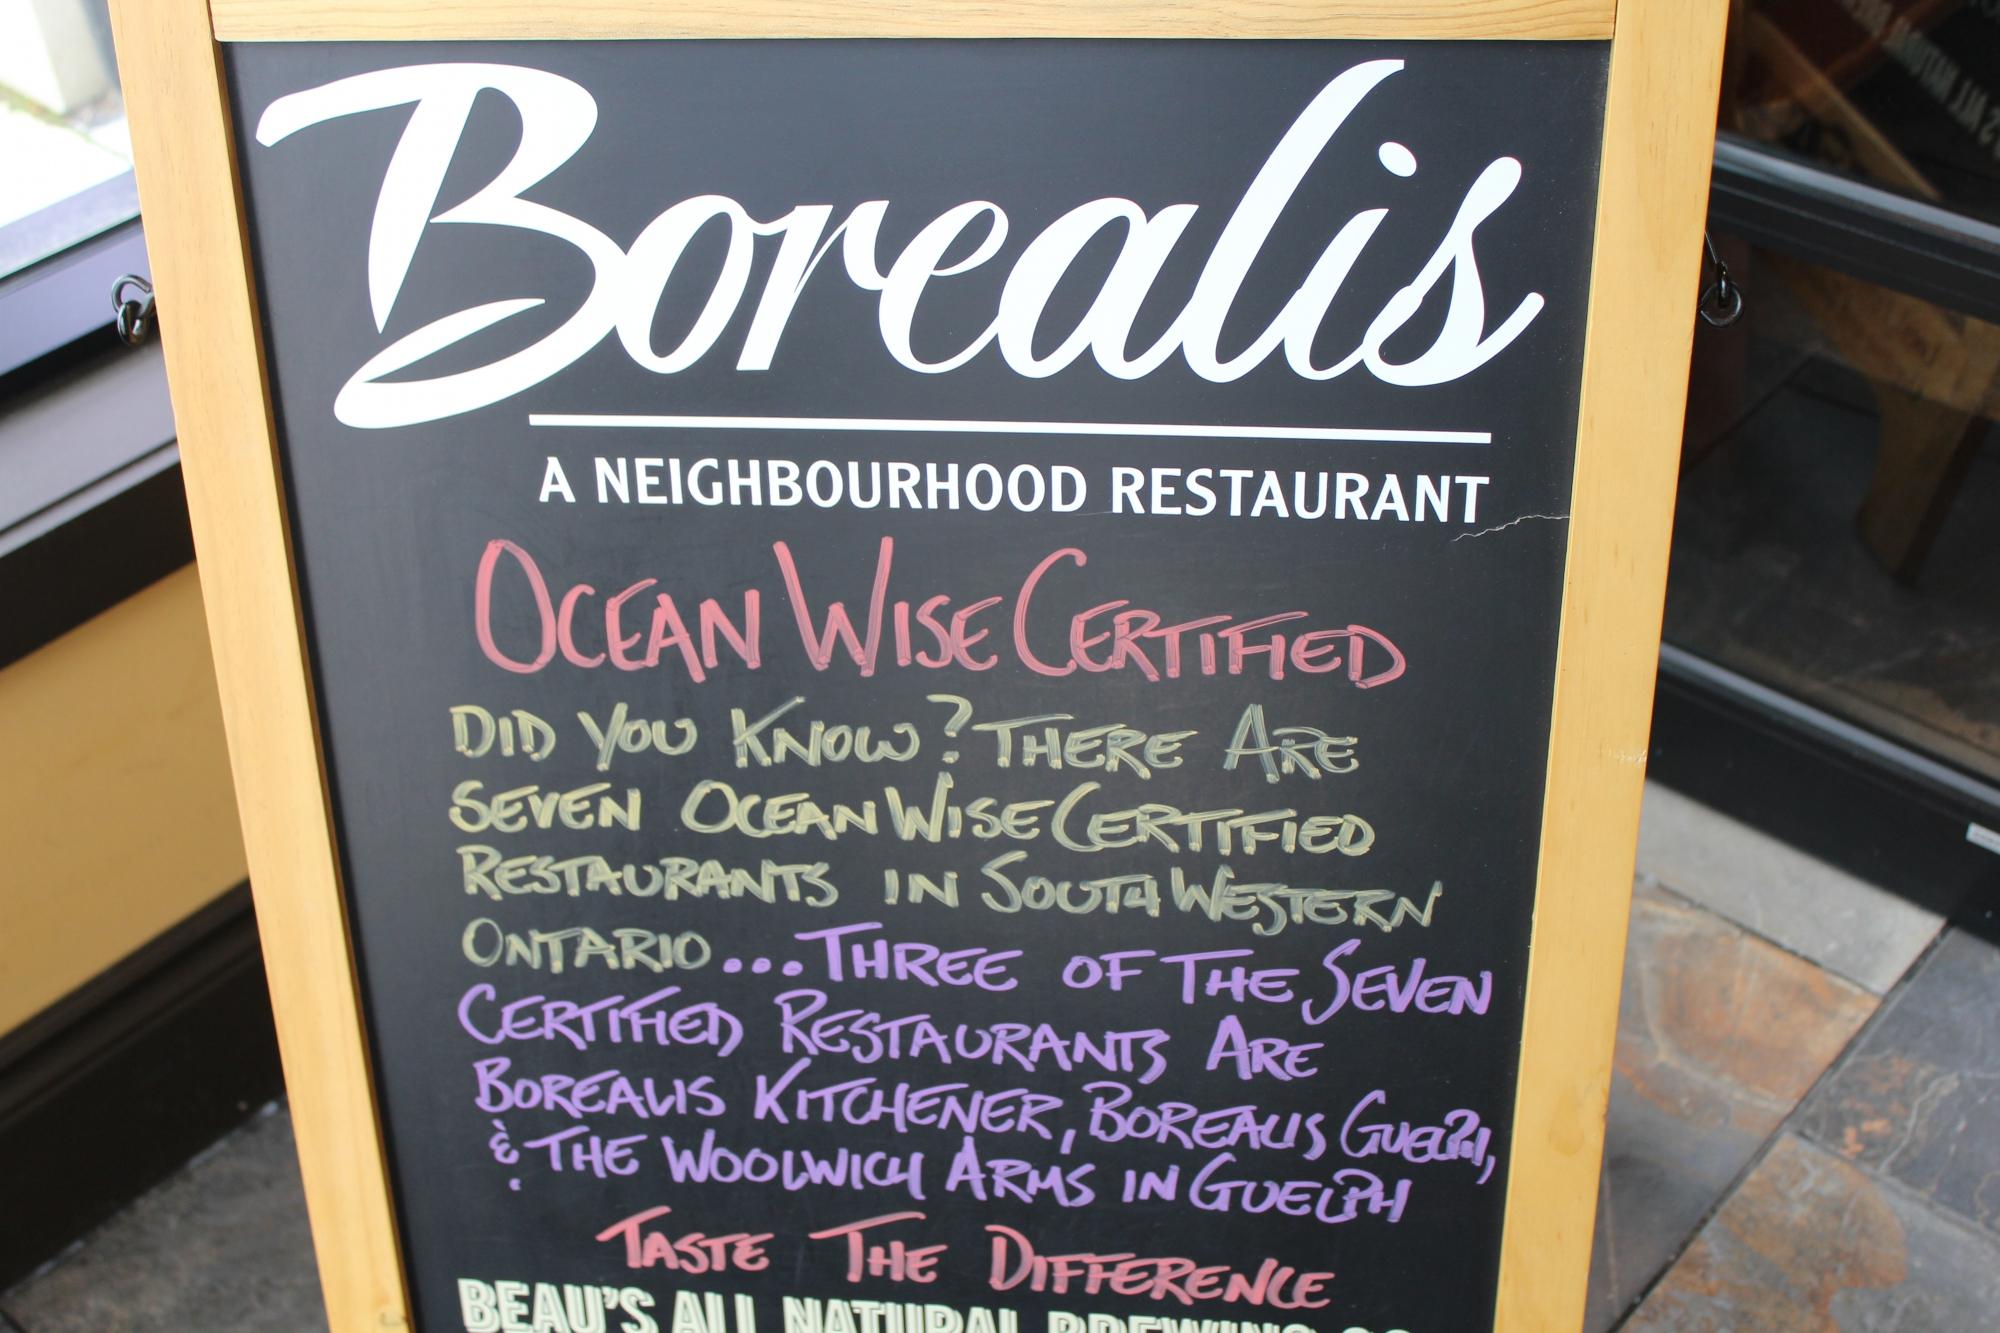 Borealis
A NEIGHBOURHOOD RESTAURANT
OCEAN WISE CERTIFIED
DID YOU KNOW? THERE ARE
SEVEN OCEAN WISE CERTIFIED
RESTAURANTS IN SOUTHWESTERN
ONTARIO ... THREE OF THE SEVEN
CERTIFIED RESTAURANTS ARE
BOREALIS KITCHENER, BOREALIS GUELPH,
& THE WOOLWICH ARMS IN GUELPH
TASTE THE DIFFERENCE
BEAU'S ALL NATURAL BREWING CO